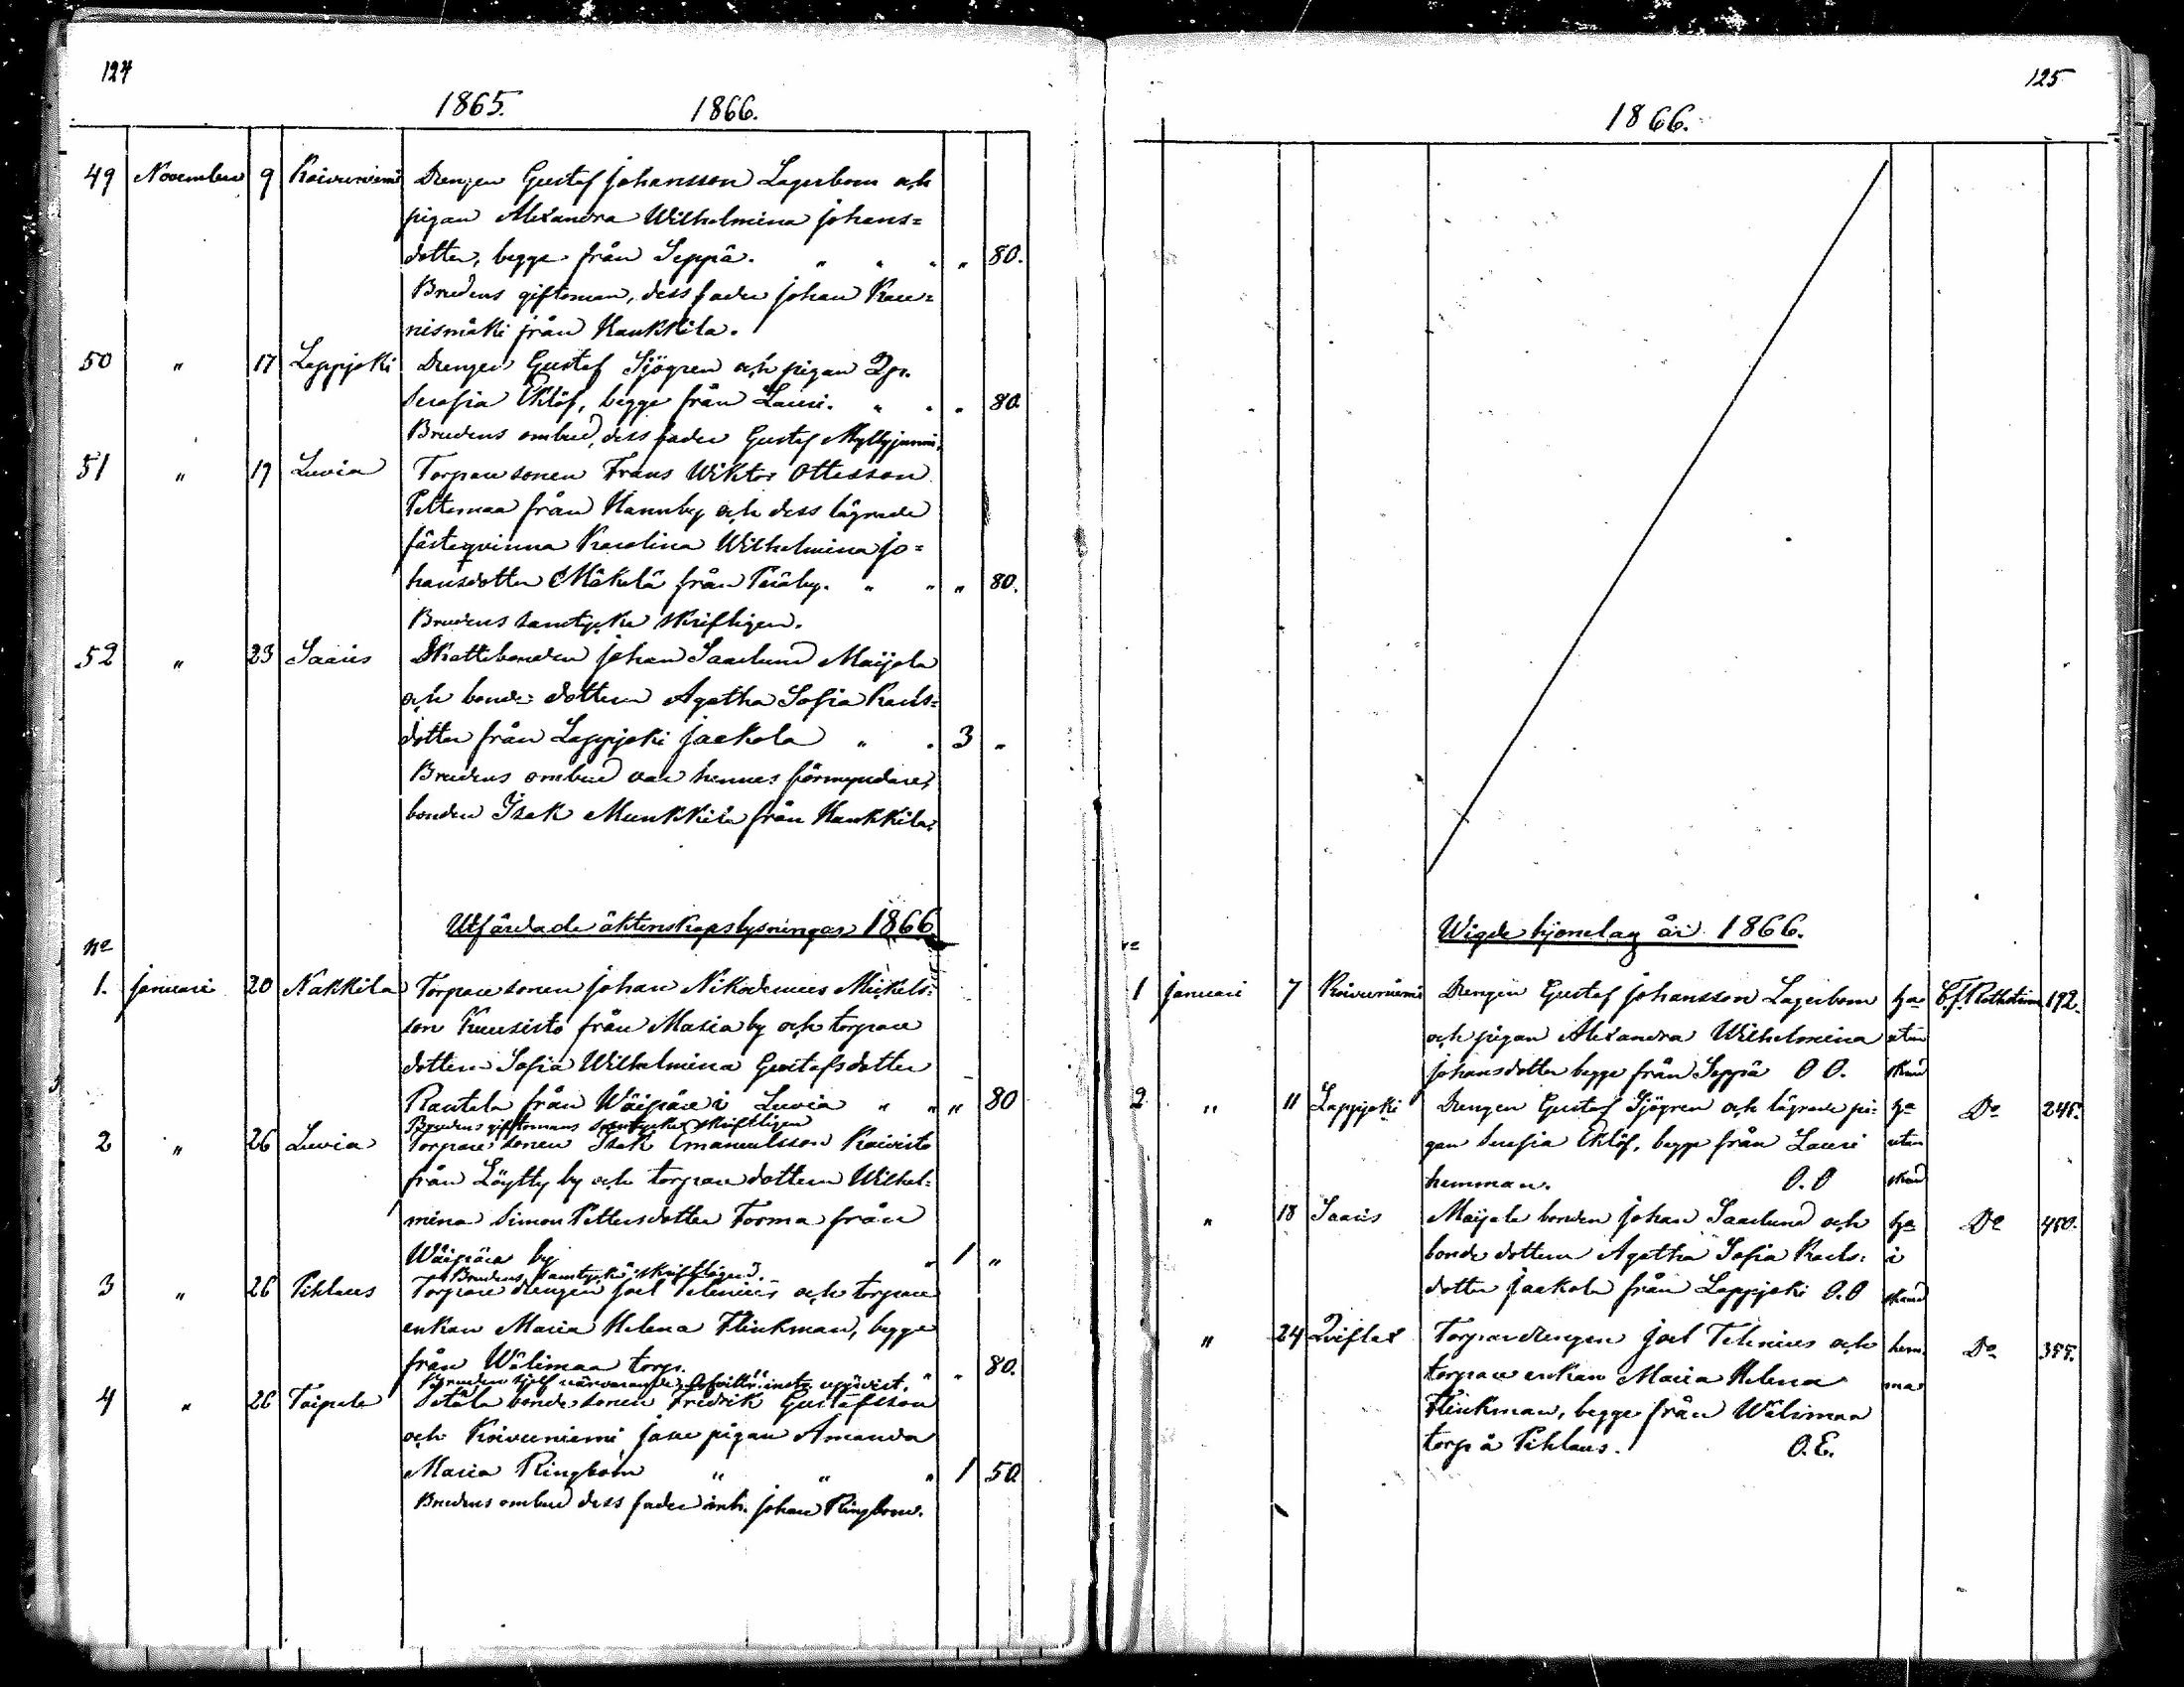 124
1865. 1866.
49 November 9 Koivuniemi Drengen Gustaf Johansson Lagerbom och
pigan Alexandra Wilhelmina Johans=
dotter, begge från Seppä. " " " " 80.
Brudens giftoman, dess fader Johan Kau=
nismäki från Hankkila.
50 " 17 Lappijoki Drengen Gustaf Sjögren och pigan
Serafia Eklöf, begge från Lauri. " " " 80.
Brudens ombud, dess fader Gustaf Myllyjunni.
51 " 19 Luvia Torpare sonen Frans Wiktor Ottosson
från Hannby och dess lägrade
fästeqvinna Karolina Wilhelmina Jo=
hansdotter Mäkelä från Peräby. " " " 80.
Brudens samtycke skriftligen.
52 " 23 Saaris Skattebonden Johan Saarlund Maijala
och bonde dottern Agatha Sofia Karls=
dotter från Lappijoki Jaakola " " 3 "
Brudens ombud var hennes förmyndare,
bonden Isak Munkkila från Hankkila.
Utfärdade äktenskapslysningar 1866.
No
1. Januari 20 Nakkila Torpare sonen Johan Nikodemus Mickels=
son Kuusisto från Masia by och torpare
dottern Sofia Wilhelmina Gustafsdotter
Rantala från Wäipäre i Luvia " " " 80
Brudens giftomans samtycke skriftligen
2 " 26 Luvia Torpare sonen Isak Emanuelsson Koivisto
från Löytty by och torpare dottern Wilhel=
mina Simon Pettersdotter Torma från
Wäipäre by " 1 "
Brudens samtycke skriftligen.
3 " 26 Pihlaus Torpare drengen Joel Telenius och torpare
enkan Maria Helena Flinkman, begge
från Wälimaa torp. " " 80.
Bruden sjelf närvarande, uppvist.
4 " 26 Taipale Setälä bonde sonen Fredrik Gustafsson
och Koivuniemi pigan Amanda
Maria Ringbom " " " 1 50.
Brudens ombud dess fader inh. Johan Ringbom.
125
1866.
Wigde hjonelag år 1866.
1 Januari 7 Koivuniemi Drengen Gustaf Johansson Lagerbom C.J. 192.
och pigan Alexandra Wilhelmina utan
Johansdotter begge från Seppä O O.
2 " 11 Lappijoki Drengen Gustaf Sjögren och lägrade pi= Do 245.
gan Serafia Eklöf, begge från Lauri utan
hemman. O.O
" 18 Saaris Maijala bonden Johan Saarlund och Do 450.
bonde dottern Agatha Sofia Karls= i
dotter Jaakola från Lappijoki O.O
" 24 Qviflax Torpardrengen Joel Telenius och hem= Do 355.
torpare enkan Maria Helena ma
Flinkman, begge från Wälimaa
torp å Pihlaus. O.E.